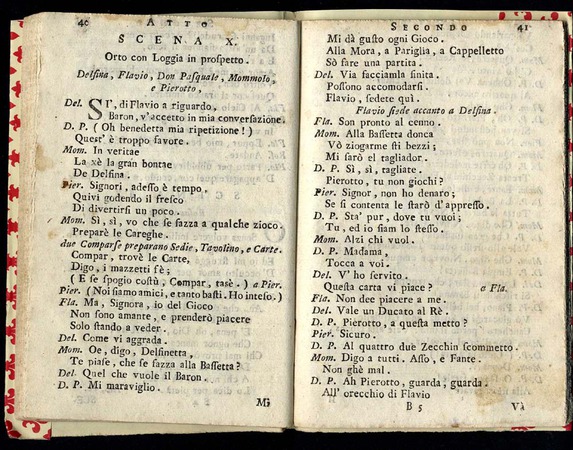 40
ATTO
SCENA X.
Orto con Loggia in prospetto.
Delfina, Flavio, Don Pasquale, Mommolo,
e Pierotto,
Del. SI', di Flavio a riguardo,
Baron, v'accetto in mia conversazione.
D. P. (Oh benedetta mia ripetizione!)
Quest' è troppo favore.
Mom. In veritae
La xè la gran bontae
De Delfina.
Pier. Signori, adesso è tempo,
Quivi godendo il fresco
Di divertirsi un poco.
Mom. Sì, sì, vo che se fazza a qualche zioco.
Preparè le Careghe.
due Comparse preparano Sedie, Tavolino, e Carte.
Compar, trovè le Carte,
Digo, i mazzetti s'è;
(E se spogio costù, Compar, tasè.) a Pier.
Pier. (Noi siamo amici, e tanto basti. Ho inteso.)
Fla. Ma, Signora, io del Gioco
Non sono amante, e prenderò piacere
Solo stando a veder.
Del. Come vi aggrada.
Mom. Oe, digo, Delfinetta,
Te piase, che se fazza alla Bassetta?
Del. Quel che vuole il Baron.
D. P. Mi maraviglio.
Mi
SECONDO
41
Mi dà gusto ogni Gioco.
Alla Mora, a Pariglia, a Cappelletto
Sò fare una partita.
Del. Via facciamla finita.
Possono accomodarsi.
Flavio, sedete quì.
Flavio siede accanto a Delfina.
Fla. Son pronto al cenno.
Mom. Alla Bassetta donca
Vò ziogarme sti bezzi;
Mi sarò el tagliador.
D. P. Sì, sì, tagliate.
Pierotto, tu non giochi?
Pier. Signor, non ho denaro;
Se si contenta le starò d'appresso.
D. P. Sta' pur, dove tu vuoi;
Tu, ed io siam lo stesso.
Mom. Alzi chi vuol.
D. P. Madama,
Tocca a voi.
Del. V' ho servito.
Questa carta vi piace? a Fla.
Fla. Non dee piacere a me.
Del. Vale un Ducato al Rè.
D. P. Pierotto, a questa metto?
Pier. Sicuro.
D. P. Al quattro due Zecchin scommetto.
Mom. Digo a tutti. Asso, e Fante.
Non ghè mal.
D. P. Ah Pierotto, guarda, guarda.
All' orecchio di Flavio
B 5
Và